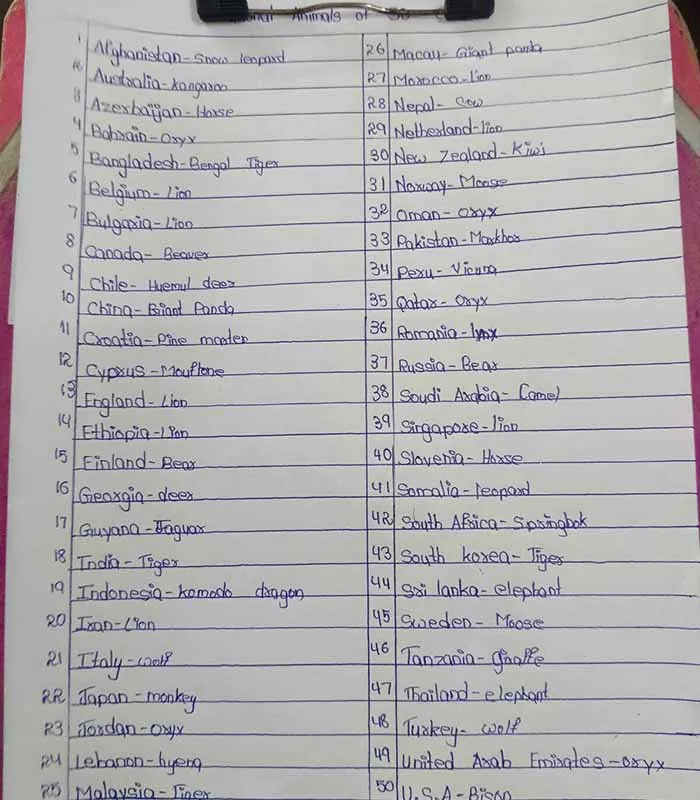 Animals of 50
1 Afghanistan - Snow leopard
2 Australia - kangaroo
3 Azerbaijan - Horse
4 Bahrain - Oryx
5 Bangladesh - Bengal Tiger
6 Belgium - Lion
7 Bulgaria - Lion
8 Canada - Beaver
9 Chile - Huemul deer
10 China - Giant Panda
11 Croatia - Pine master
12 Cyprus - Mouflone
13 England - Lion
14 Ethiopia - Lion
15 Finland - Bear
16 Georgia - deer
17 Guyana - Jaguar
18 India - Tiger
19 Indonesia - komodo dragon
20 Iran - Lion
21 Italy - wolf
22 Japan - monkey
23 Jordan - oryx
24 Lebanon - hyena
25 Malaysia - Tiger
26 Macau - Giant panda
27 Morocco - lion
28 Nepal - Cow
29 Netherland - lion
30 New Zealand - Kiwi
31 Norway - Moose
32 Oman - oryx
33 Pakistan - Markhor
34 Peru - Vicuna
35 Qatar - oryx
36 Romania - lynx
37 Russia - Bear
38 Saudi Arabia - Camel
39 Singapore - lion
40 Slovenia - Horse
41 Somalia - leopard
42 South Africa - Springbok
43 South korea - Tiger
44 Sri lanka - elephant
45 Sweden - Moose
46 Tanzania - giraffe
47 Thailand - elephant
48 Turkey - wolf
49 United Arab Emirates - oryx
50 U.S.A - Bison